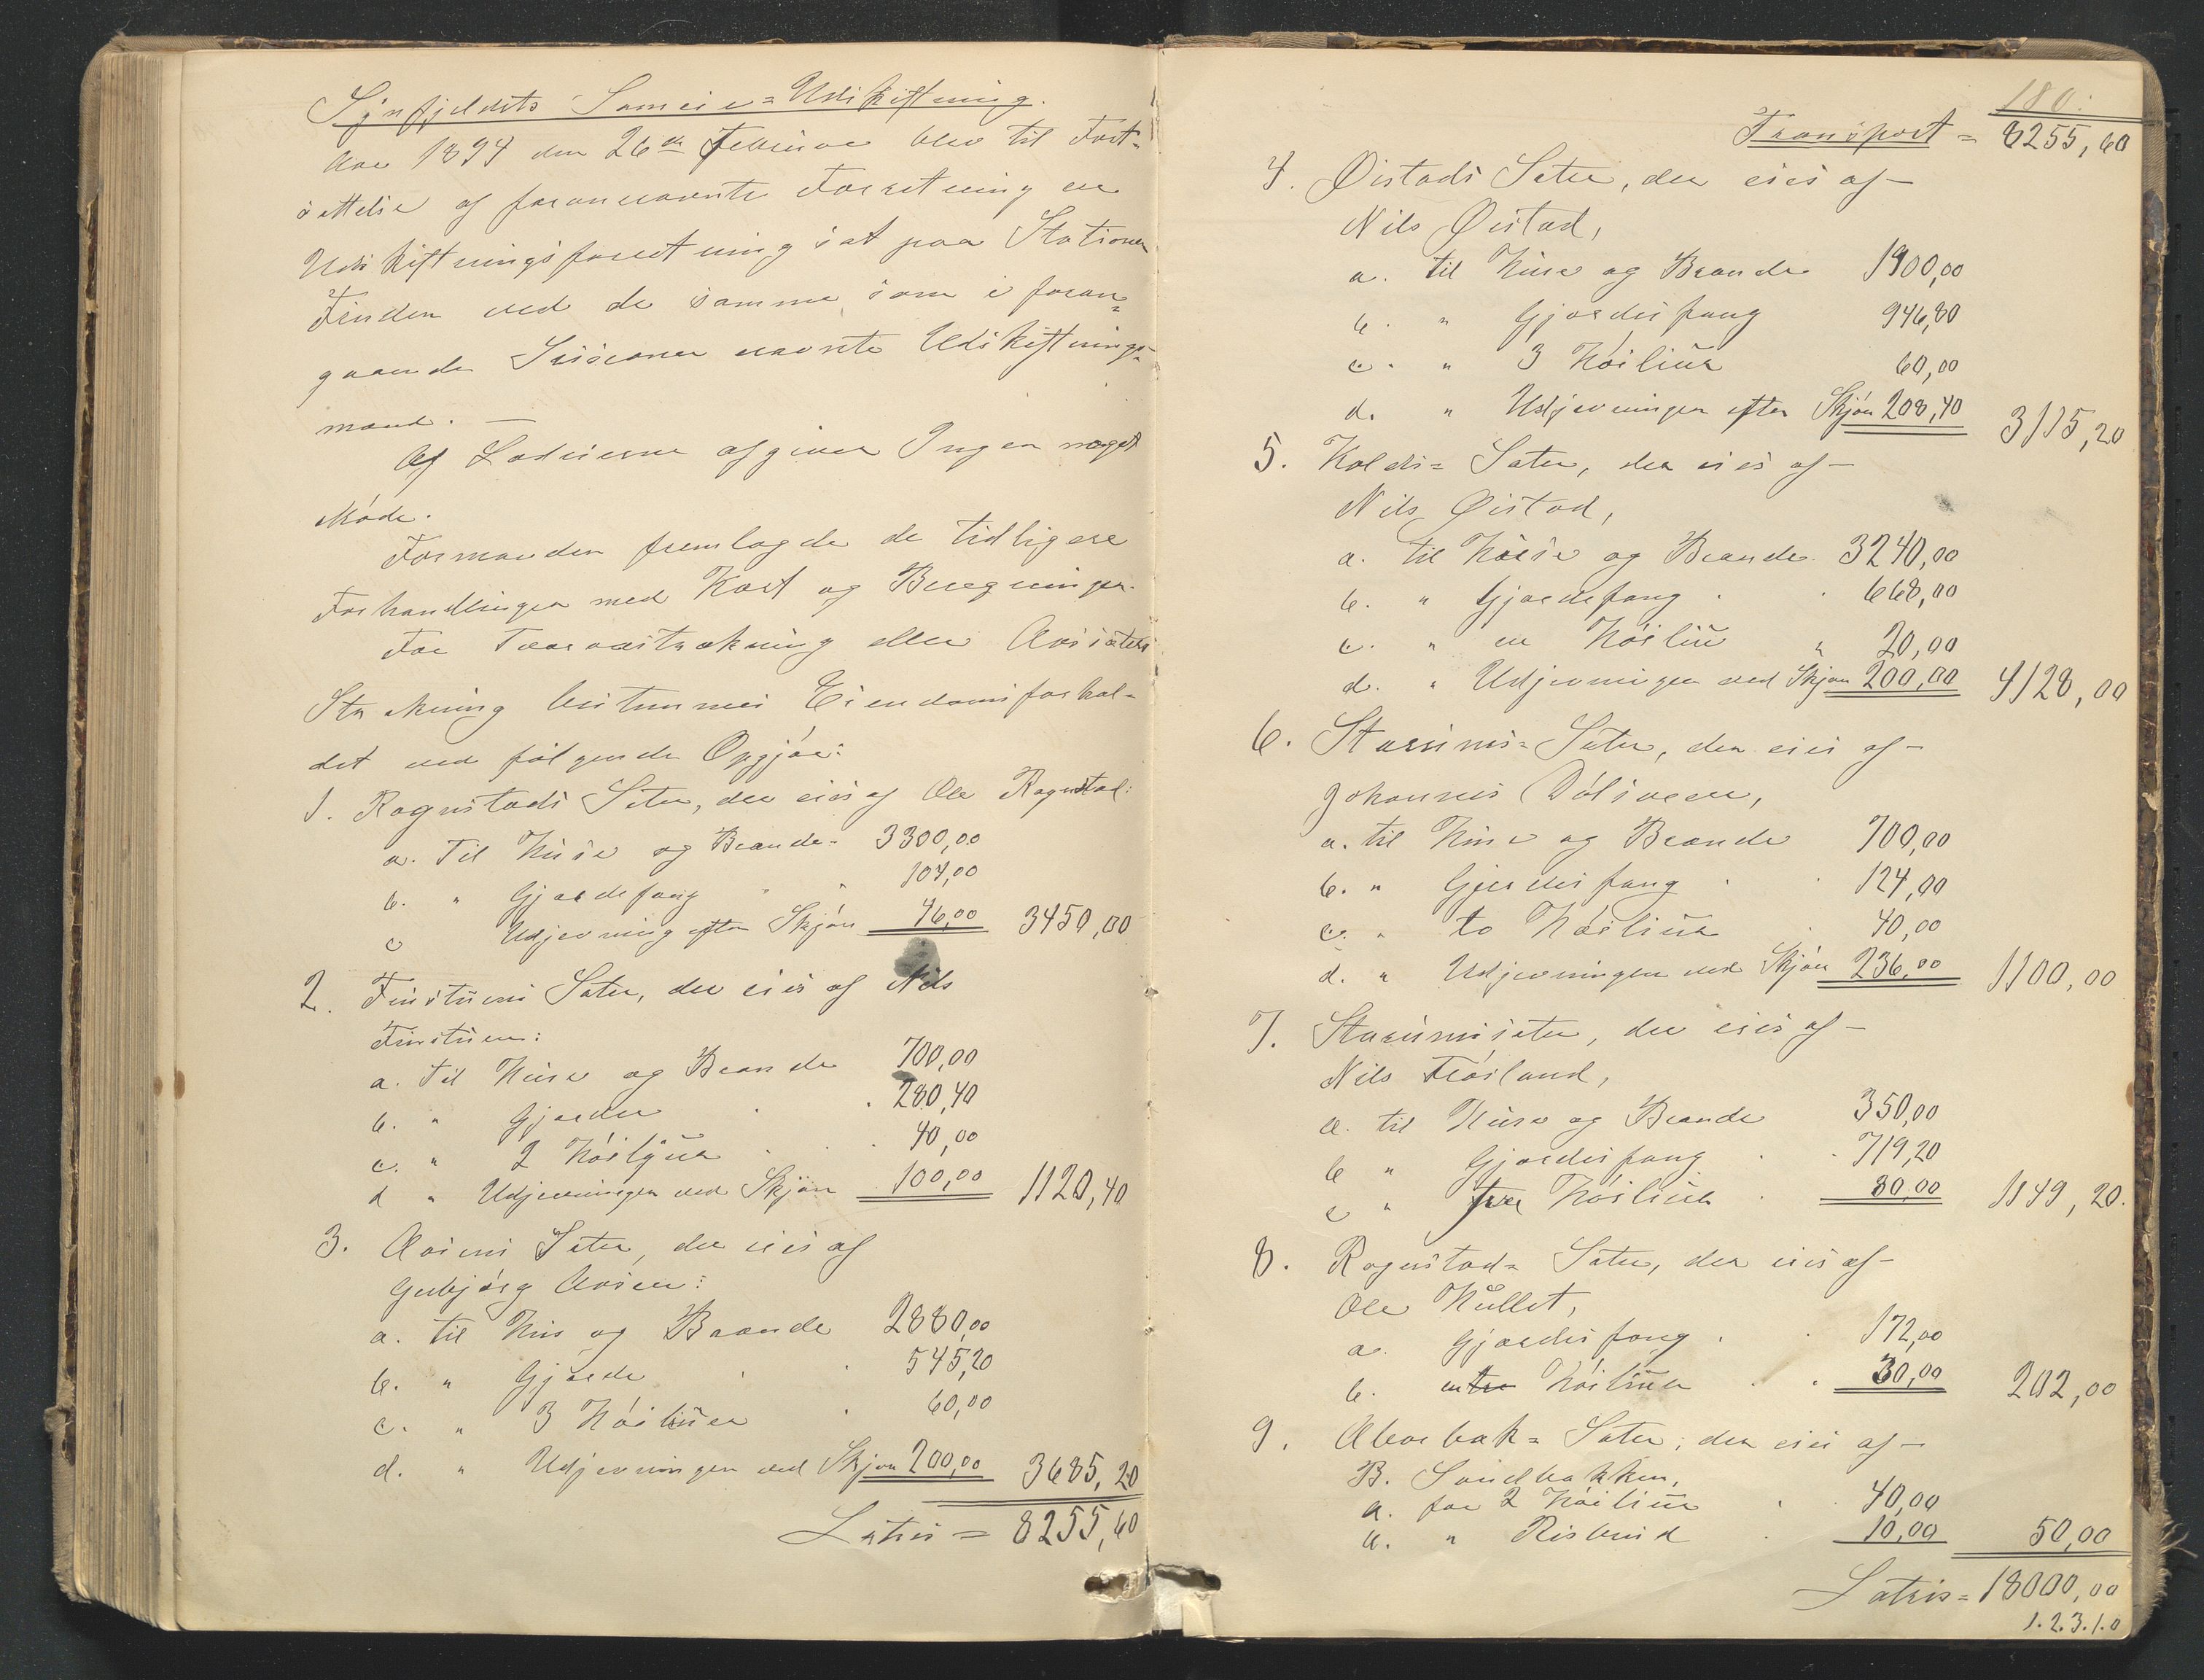 Synfjeldets Sameie=Udskiftning.
Aar 1894 den 26de Februar blev til Fort=
sættelse af forannævnte Forretning en
Udskiftningsforretning sat paa Stationen
Finden ved de samme som i foran=
gaaende Sessioner nævnte Udskiftnings=
mænd. —
Af Lodeierne afgiver Ingen noget
Møde.
Formanden fremlagde de tidligere
Forhandlinger med Kart og Beregninger.
For Strækning eller
Strækning bestemmes Eiendomsforhol=
det ved følgende Opgjør:
1. Rognstads Sæter, der eies af Ole Rognstad:
a. Til Huse og Brænde- 3300,00
b. " Gjærdefang " " 104,00
c Udjevning efter Skjøn 46,00 3450,00
2. Finstuens Sæter, der eies af Nils
Finstuen:
a. til Huse og Brænde 700,00
b. " Gjærder 280,40
c. " 2 Høiljuer 40,00
d " Udjevningen ved Skjøn 100,00 1120,40
3. Aasens Sæter, der eies af
Gubjørg Aasen:
a. til Hus og Brænde 2880,00
b. " Gjærde 545,20
c. " 3 Høiliuer 60,00
d. " Udjevningen ved Skjøn 200,00 3685,20
Latris = 8255,60
180.
Transport = 8255,60
4. Øistads Sæter, der eies af —
Nils Øistad,
a. til Huse og Brænde 1900,00
b. " Gjærdesfang 946,80
c. " 3 Høiliuer 60,00
d. " Udjevningen efter Skjøn 208,40 3115,20
5. Kolds= Sæter, der eies af —
Nils Øistad,
a. til Huse og Brænde 3240,00
b. " Gjærdefang 668,00
c. " en Høiliu " 20,00
d. " Udjevningen ved Skjøn 200,00 4128,00
6. Sæter, der eies af —
Johannes
a. til Huse og Brænde 700,00
b. " Gjerdesfang 124,00
c. " to Høiliuer 40,00
d. " Udjevningen ved Skjøn 236,00 1100,00
7. der eies af —
Nils Frøsland,
a. til Huse og Brænde 350,00
b " Gjærdesfang 719,20
c " Høiliuer 80,00 1149,20.
8. Rognstad= Sæter, der eies af —
Ole Hullet,
a. Gjærdesfang 172,00
b. Høiliuer 30,00 202,00
9. Aberbak= Sæter, der eies af —
B. Sandbakken,
a. for 2 Høiliuer 40,00
b. " Risbund 10,00 50,00
Latris = 18000,00
1.2.3.1.0